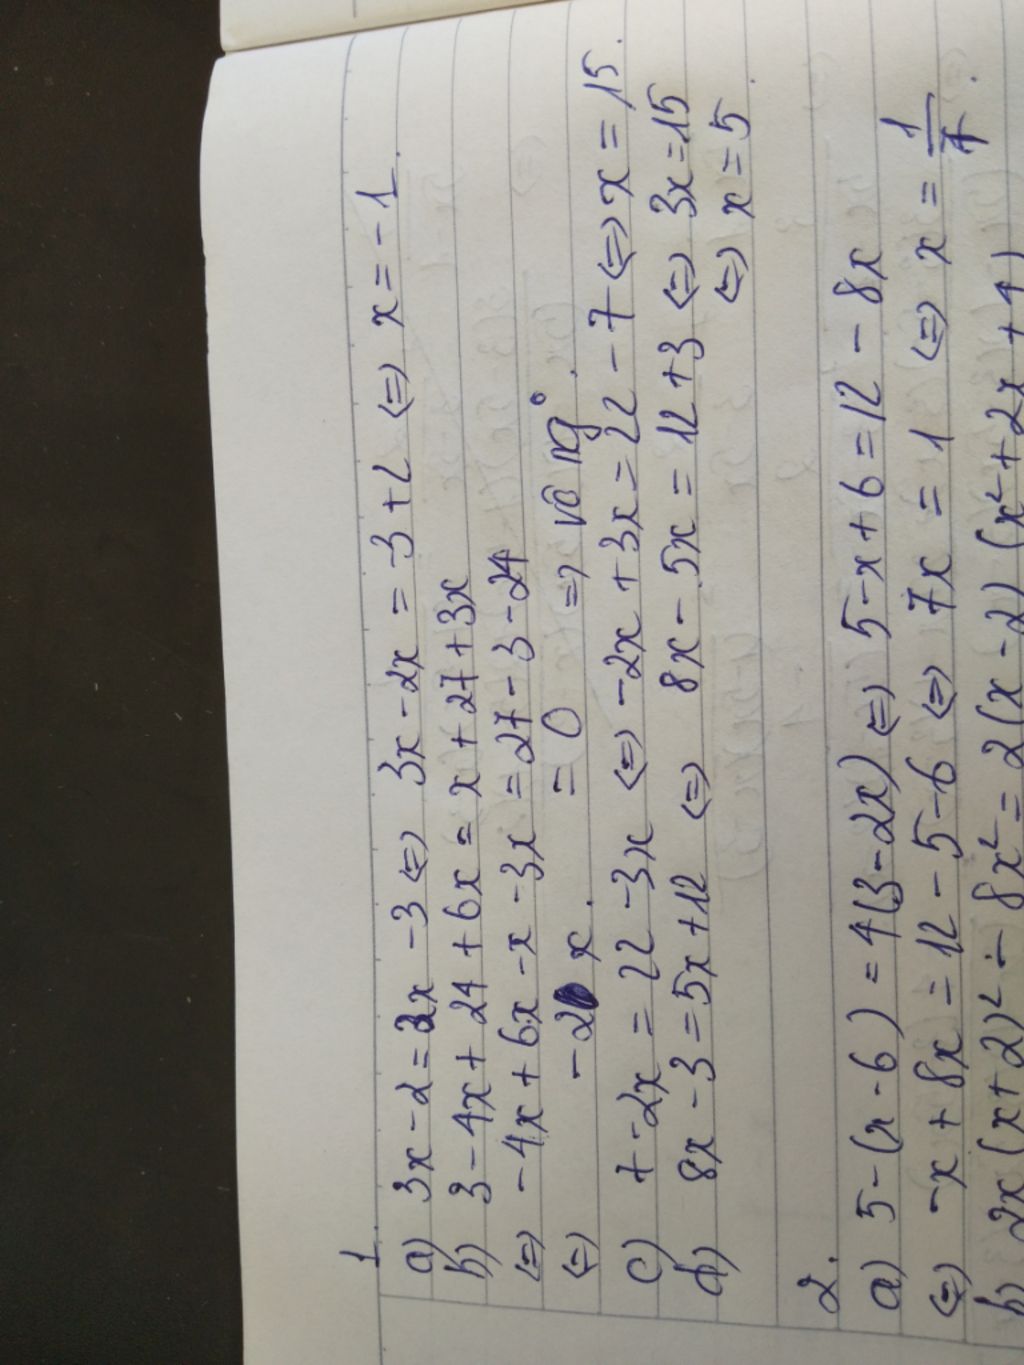 1.
a) 3x - 2 = 2x - 3 (=) 3x - 2x = -3 + 2 (=) x = -1.
b) 3 - 4x + 24 + 6x = x + 27 + 3x
(=) -4x + 6x - x - 3x = 27 - 3 - 24
(=) -2 x = 0 => vô ngº.
c) 7 - 2x = 22 - 3x (=) -2x + 3x = 22 - 7 (=) x = 15.
d) 8x - 3 = 5x + 12 (=) 8x - 5x = 12 + 3 (=) 3x = 15
(=) x = 5.
2.
a) 5 - (x - 6) = 4(3 - 2x) (=) 5 - x + 6 = 12 - 8x
(=) -x + 8x = 12 - 5 - 6 (=) 7x = 1 (=) x = 1/7.
b) 2x(x + 2)² - 8x² = 2(x - 2)(x² + 2x + 4)